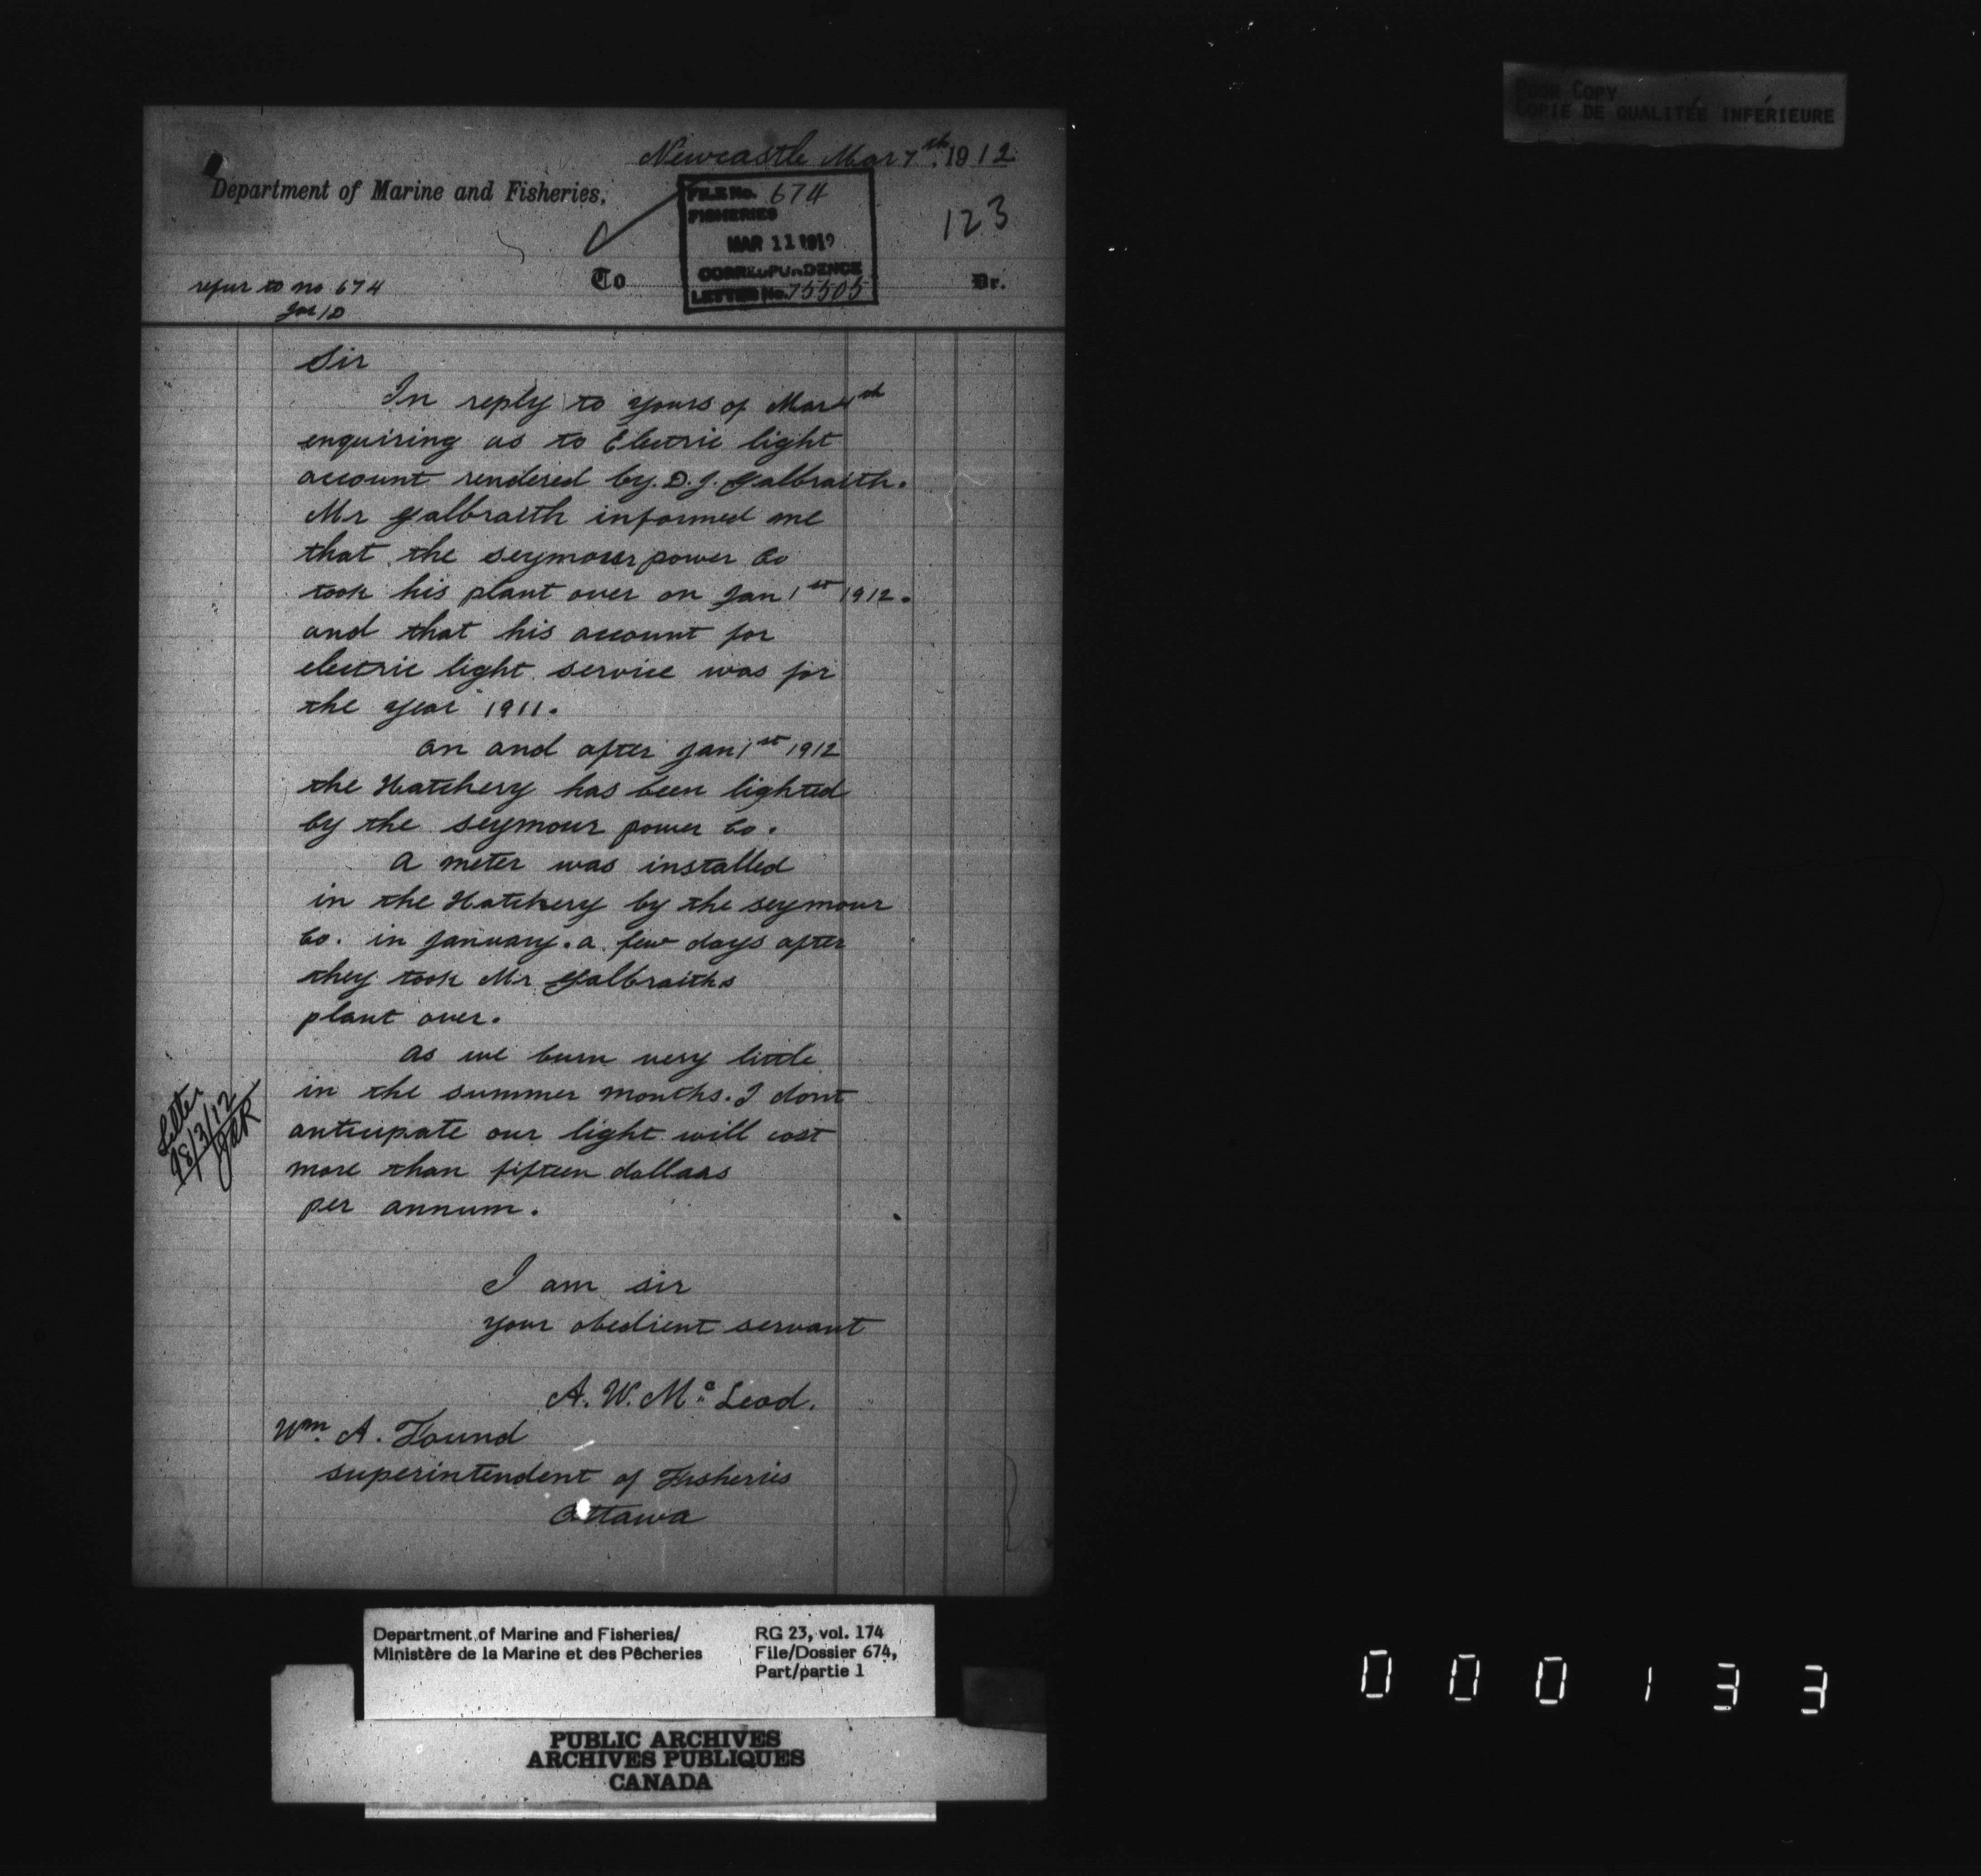 POOR COPY
COPIE DE QUALITÉE INFÉRIEURE
Newcastle Mar 7th. 1912
Department of Marine and Fisheries,
FILE No. 674
FISHERIES
MAR 11 1912
CORRESPONDENCE
LETTER No. 75505
123
To
Dr.
refur to no 674
Sir
In reply to yours of Mar 4th
enquiring as to Electric light
account rendered by. D. J. Galbraith.
Mr Galbraith informed me
that the seymour power Co
took his plant over on Jan 1st 1912.
and that his account for
electric light service was for
the year 1911.
on and after Jan 1st 1912
the Hatchery has been lighted
by the seymour power Co.
a meter was installed
in the Hatchery by the seymour
Co. in January. a few days after
they took Mr Galbraiths
plant over.
as we burn very little
in the summer months. I dont
anticipate our light will cost
more than fifteen dollars
per annum.
Letter
18/3/12
I am sir
your obedient servant
A. W. Mc Leod.
Wm. A. Found
superintendent of Fisheries
Ottawa
Department of Marine and Fisheries/
Ministère de la Marine et des Pêcheries
RG 23, vol. 174
File/Dossier 674,
Part/partie 1
PUBLIC ARCHIVES
ARCHIVES PUBLIQUES
CANADA
000133